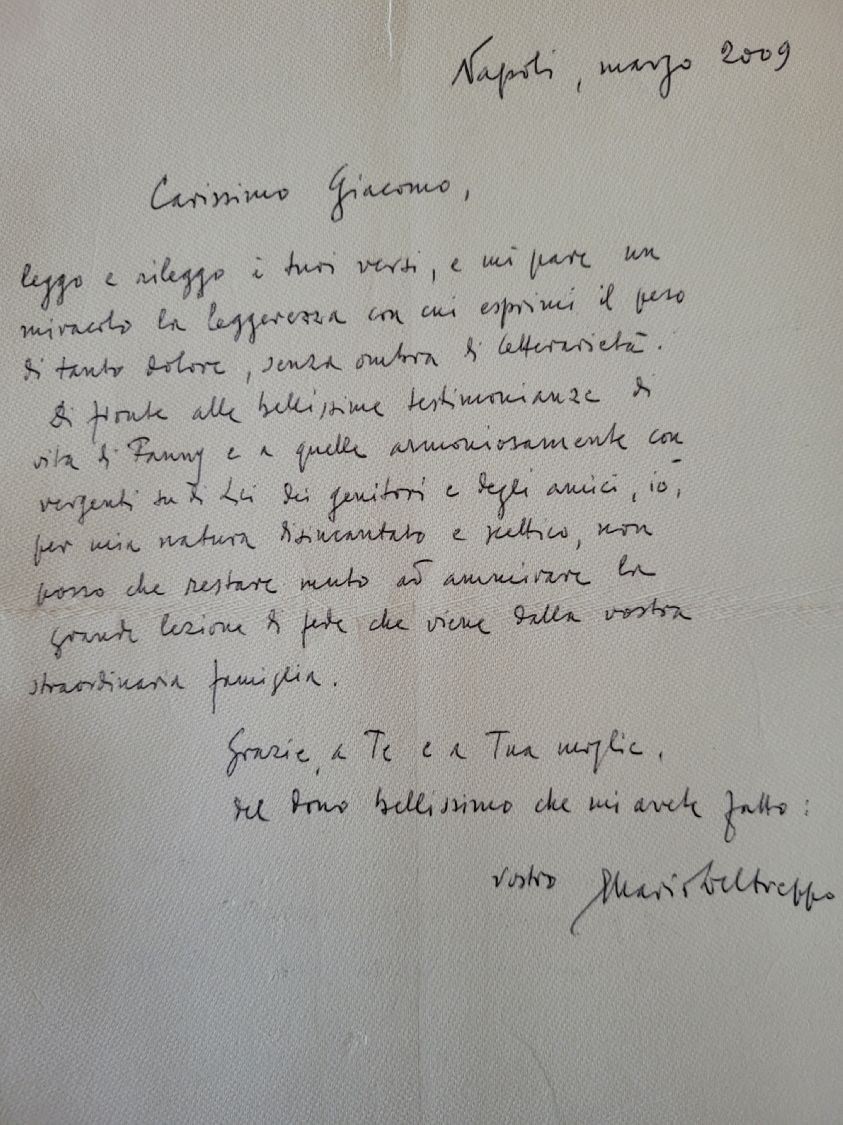 Napoli, marzo 2009
Carissimo Giacomo,
leggo e rileggo i tuoi versi, e mi pare un
miracolo la leggerezza con cui esprimi il peso
di tanto dolore, senza ombra di letterarietà.
Di fronte alle bellissime testimonianze di
vita di Fanny e a quelle armoniosamente con
vergenti su di Lei dei genitori e degli amici, io,
per mia natura disincantato e scettico, non
posso che restare muto ad ammirare la
grande lezione di fede che viene dalla vostra
straordinaria famiglia.
Grazie, a Te e a Tua moglie,
del dono bellissimo che mi avete fatto:
vostro Mario